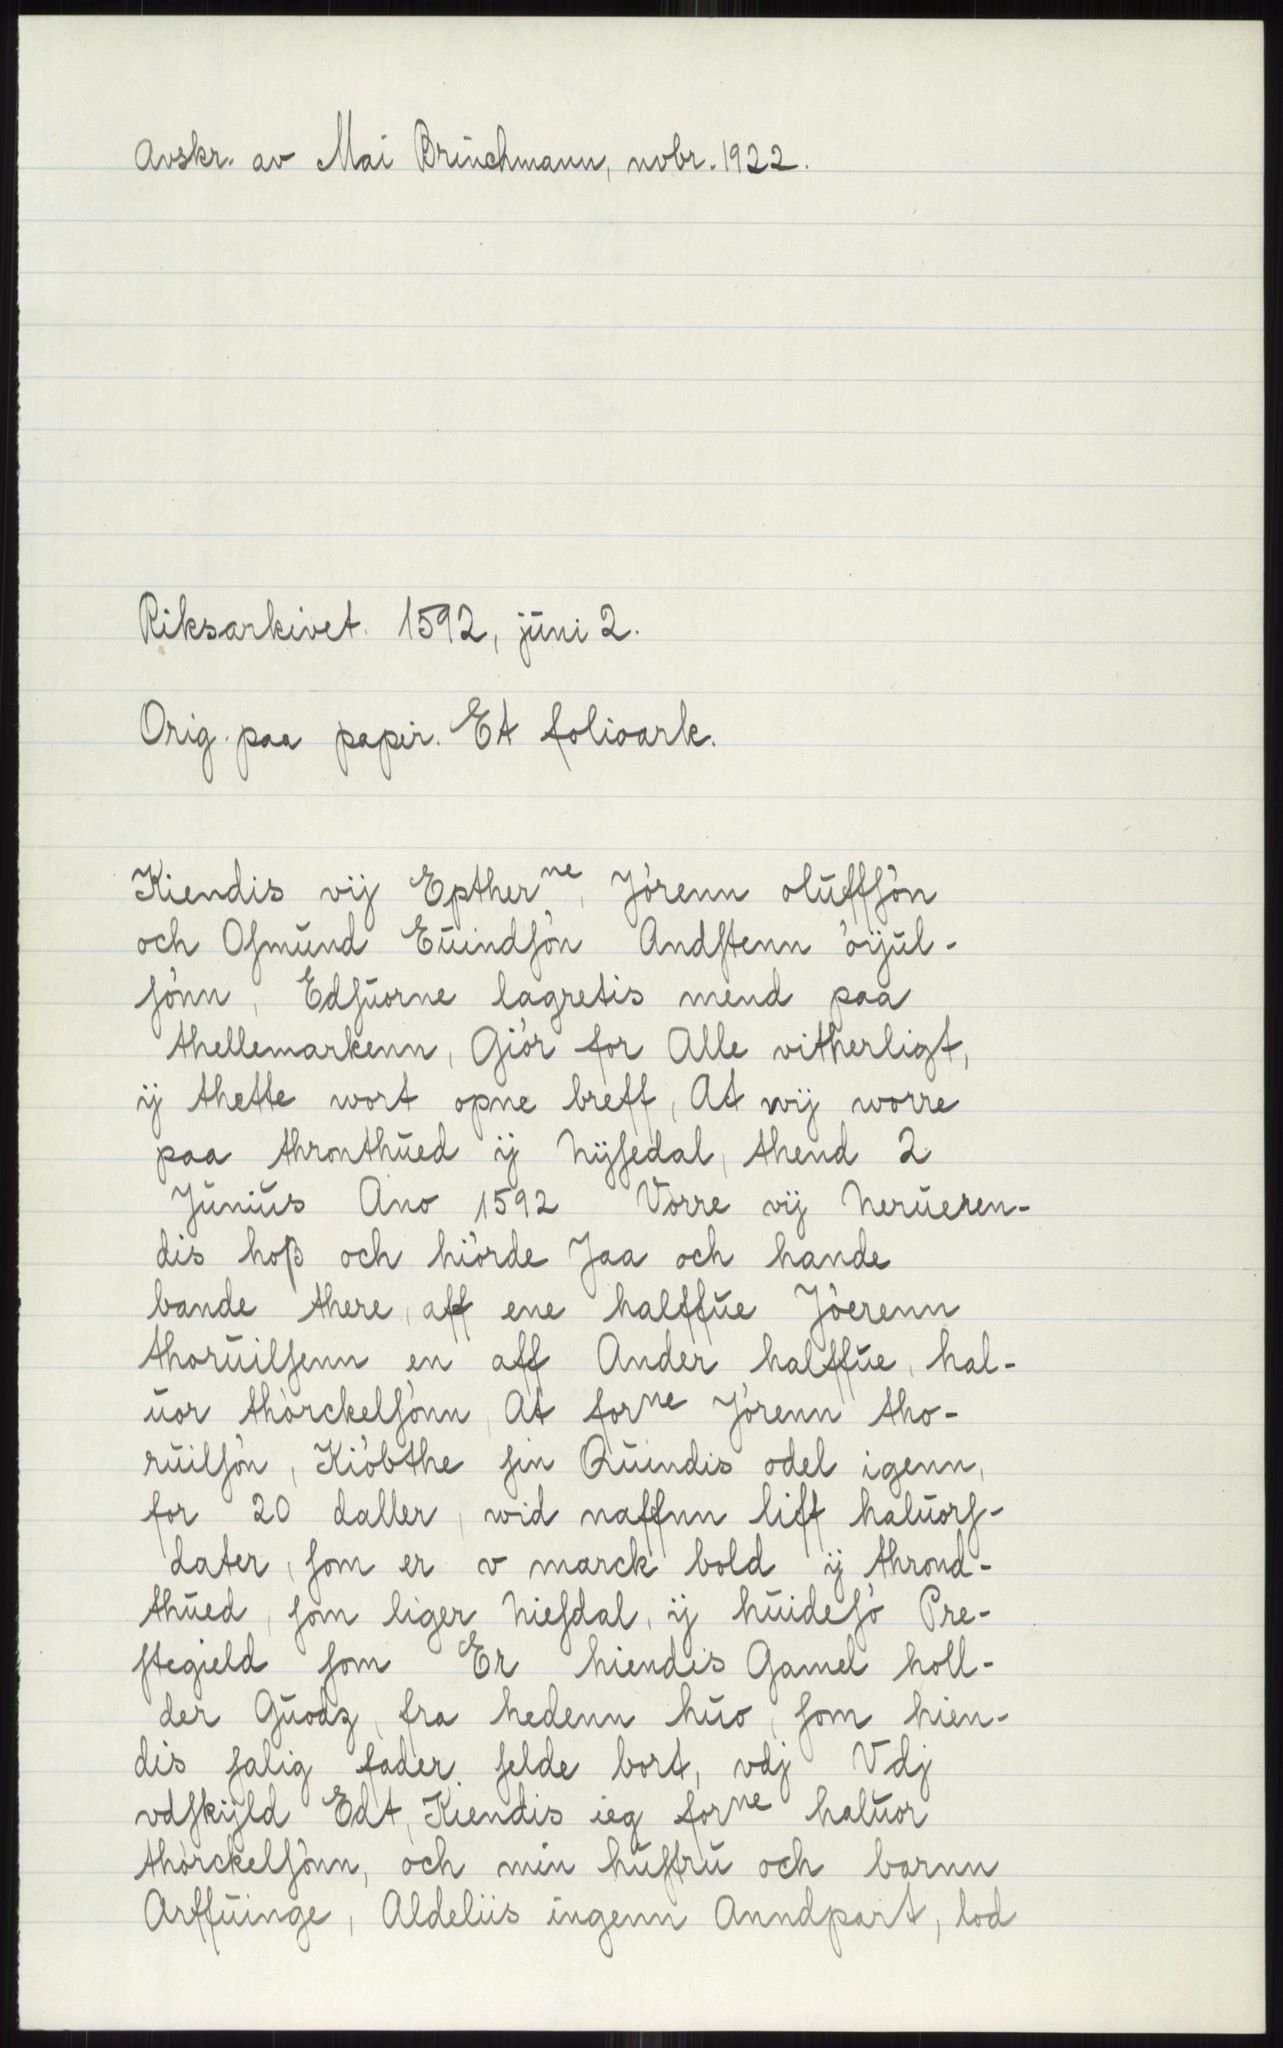 Avskr. av Mai Brünchmann, nvbr. 1922.
Riksarkivet. 1592, jūni 2.
Orig. paa papir. Et folioark.
Kiendis vij Epther<sup>ne</sup>, Jórenn olūffſón
och Oſmūnd Eūindſón Andſtenn óijūl-
ſónn, Edſūorne lagretis mend paa
thellemarkenn, Giór for Alle vitherligt,
ij thette wort opne breff, At wij worre
paa thronthūed ij Nijſedal, thend 2
Jūniūs Ano 1592 Vorre vij Nerūeren-
dis hoß och hiórde Jaa och hande
bande there, aff ene halffūe Jóerenn
thorūilſenn en aff Ander halffūe, hal-
ūor thórckelſónn, At for<sup>ne</sup> Jórenn tho-
rūilſón, Kióbthe ſin Qūindis odel igenn,
for 20 daller, wid naffnn lift halūorſ-
dater, ſom er v marck bold ij thrond-
thūed, ſom liger Nieſdal, ij hūideſó Pre-
ſtegield ſom Er hiendis Gamel holl-
der Gūodz, fra hedenn hūo, ſom hien-
dis ſalig fader ſelde bort, vdj Vdj
vdſkijld Edt, Kiendis ieg for<sup>ne</sup> halūor
thórckelſónn, och min hūſtrū och barnn
Arffūinge, Aldeliis ingenn Anndpart, lod